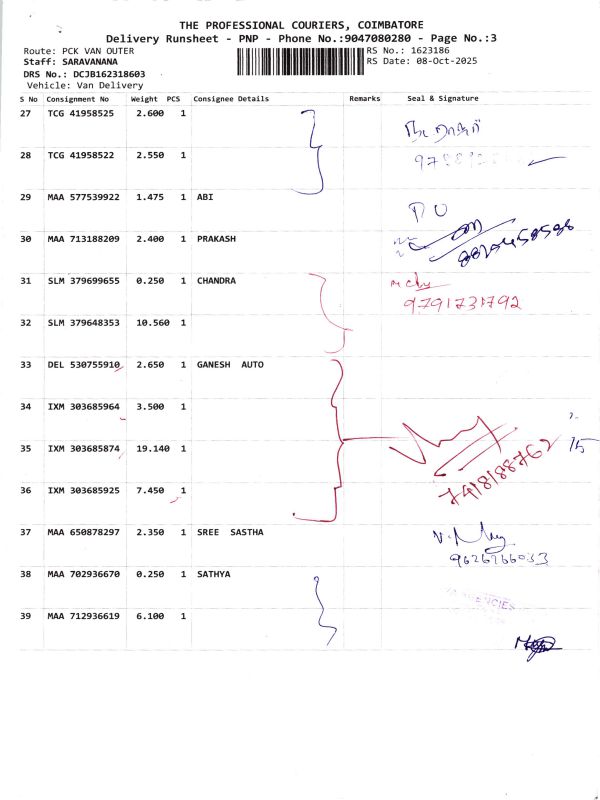 THE PROFESSIONAL COURIERS, COIMBATORE
Delivery Runsheet - PNP - Phone No.:9047080280 - Page No.:3
Route: PCK VAN OUTER
RS No.: 1623186
Staff: SARAVANANA
RS Date: 08-Oct-2025
DRS No.: DCJB162318603
Vehicle: Van Delivery
S No Consignment No Weight PCS Consignee Details Remarks Seal & Signature
27 TCG 41958525 2.600 1
28 TCG 41958522 2.550 1
29 MAA 577539922 1.475 1 ABI
30 MAA 713188209 2.400 1 PRAKASH
31 SLM 379699655 0.250 1 CHANDRA
9791731792
32 SLM 379648353 10.560 1
33 DEL 530755910 2.650 1 GANESH AUTO
34 IXM 303685964 3.500 1
35 IXM 303685874 19.140 1
7418188762
36 IXM 303685925 7.450 1
37 MAA 650878297 2.350 1 SREE SASTHA
9626266033
38 MAA 702936670 0.250 1 SATHYA
39 MAA 712936619 6.100 1